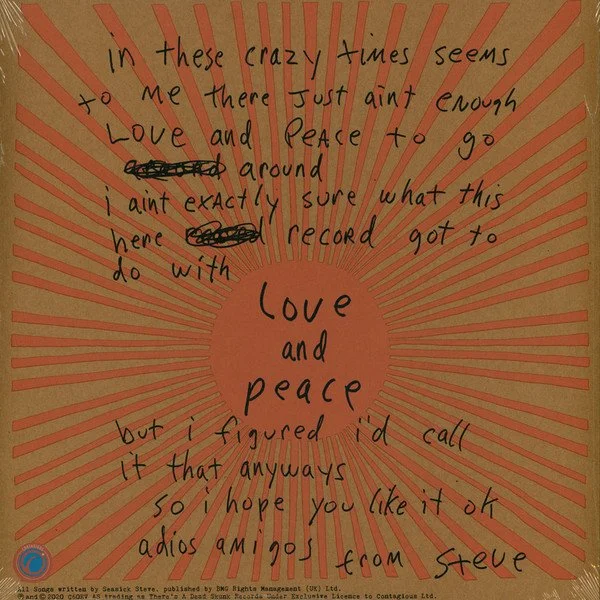 in these crazy times seems
to me there just aint enough
LOVE and PEACE to go
around
i aint exactly sure what this
here record got to
do with
Love
and
peace
but i figured i'd call
it that anyways
so i hope you like it ok
adios amigos from Steve
All Songs written by Seasick Steve. published by BMG Rights Management (UK) Ltd.
℗ and © 2020 C60BY AS trading as There's A Dead Skunk Records Under Exclusive Licence to Contagious Ltd.